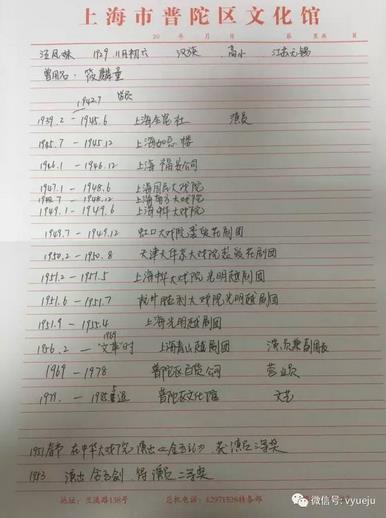 上海市普陀区文化馆
20 年 月 日 第 页 共 页
汪凤妹 1929.11月初六 汉族 高小 江苏无锡
曾用名：筱麟童
1942.7
1939.2 — 1945.6 上海 社 演员
1945.7 — 1945.12 上海 楼
1946.1 — 1946.12 上海 公司
1947.1 — 1948.6 上海国民大戏院
1948.7 — 1948.12 上海 大戏院
1949.1 — 1949.6 上海中华大戏院
1949.7 — 1949.12 虹口大戏院 剧团
1950.2 — 1950.8 天津大华京大戏院 剧团
1951.2 — 1951.5 上海中华大戏院光明越剧团
1951.6 — 1951.7 杭州胜利大戏院光明越剧团
1951.9 — 1955.4 上海光明越剧团
1969
1956.2 — "文革"时 上海青山越剧团 演员兼副团长
1969 — 1978 普陀区百货公司 营业员
1979. — 1985 退 普陀区文化馆 文艺
1951春节 在中华大戏院 演出 获演员二等奖
1953 演出 得演员二等奖
地址：兰溪路138号 总机电话：62971528转各部
微信号: vyueju